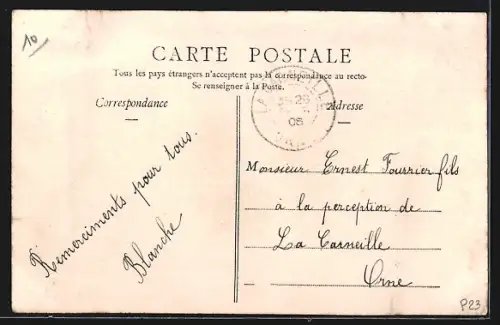 10
CARTE POSTALE
Tous les pays étrangers n'acceptent pas la correspondance au recto-
Se renseigner à la Poste.
Correspondance
Adresse
LA CARNEILLE
05
Remerciments pour tous.
Blanche
Monsieur Ernest Fourrier fils
à la perception de
La Carneille
Orne
P23